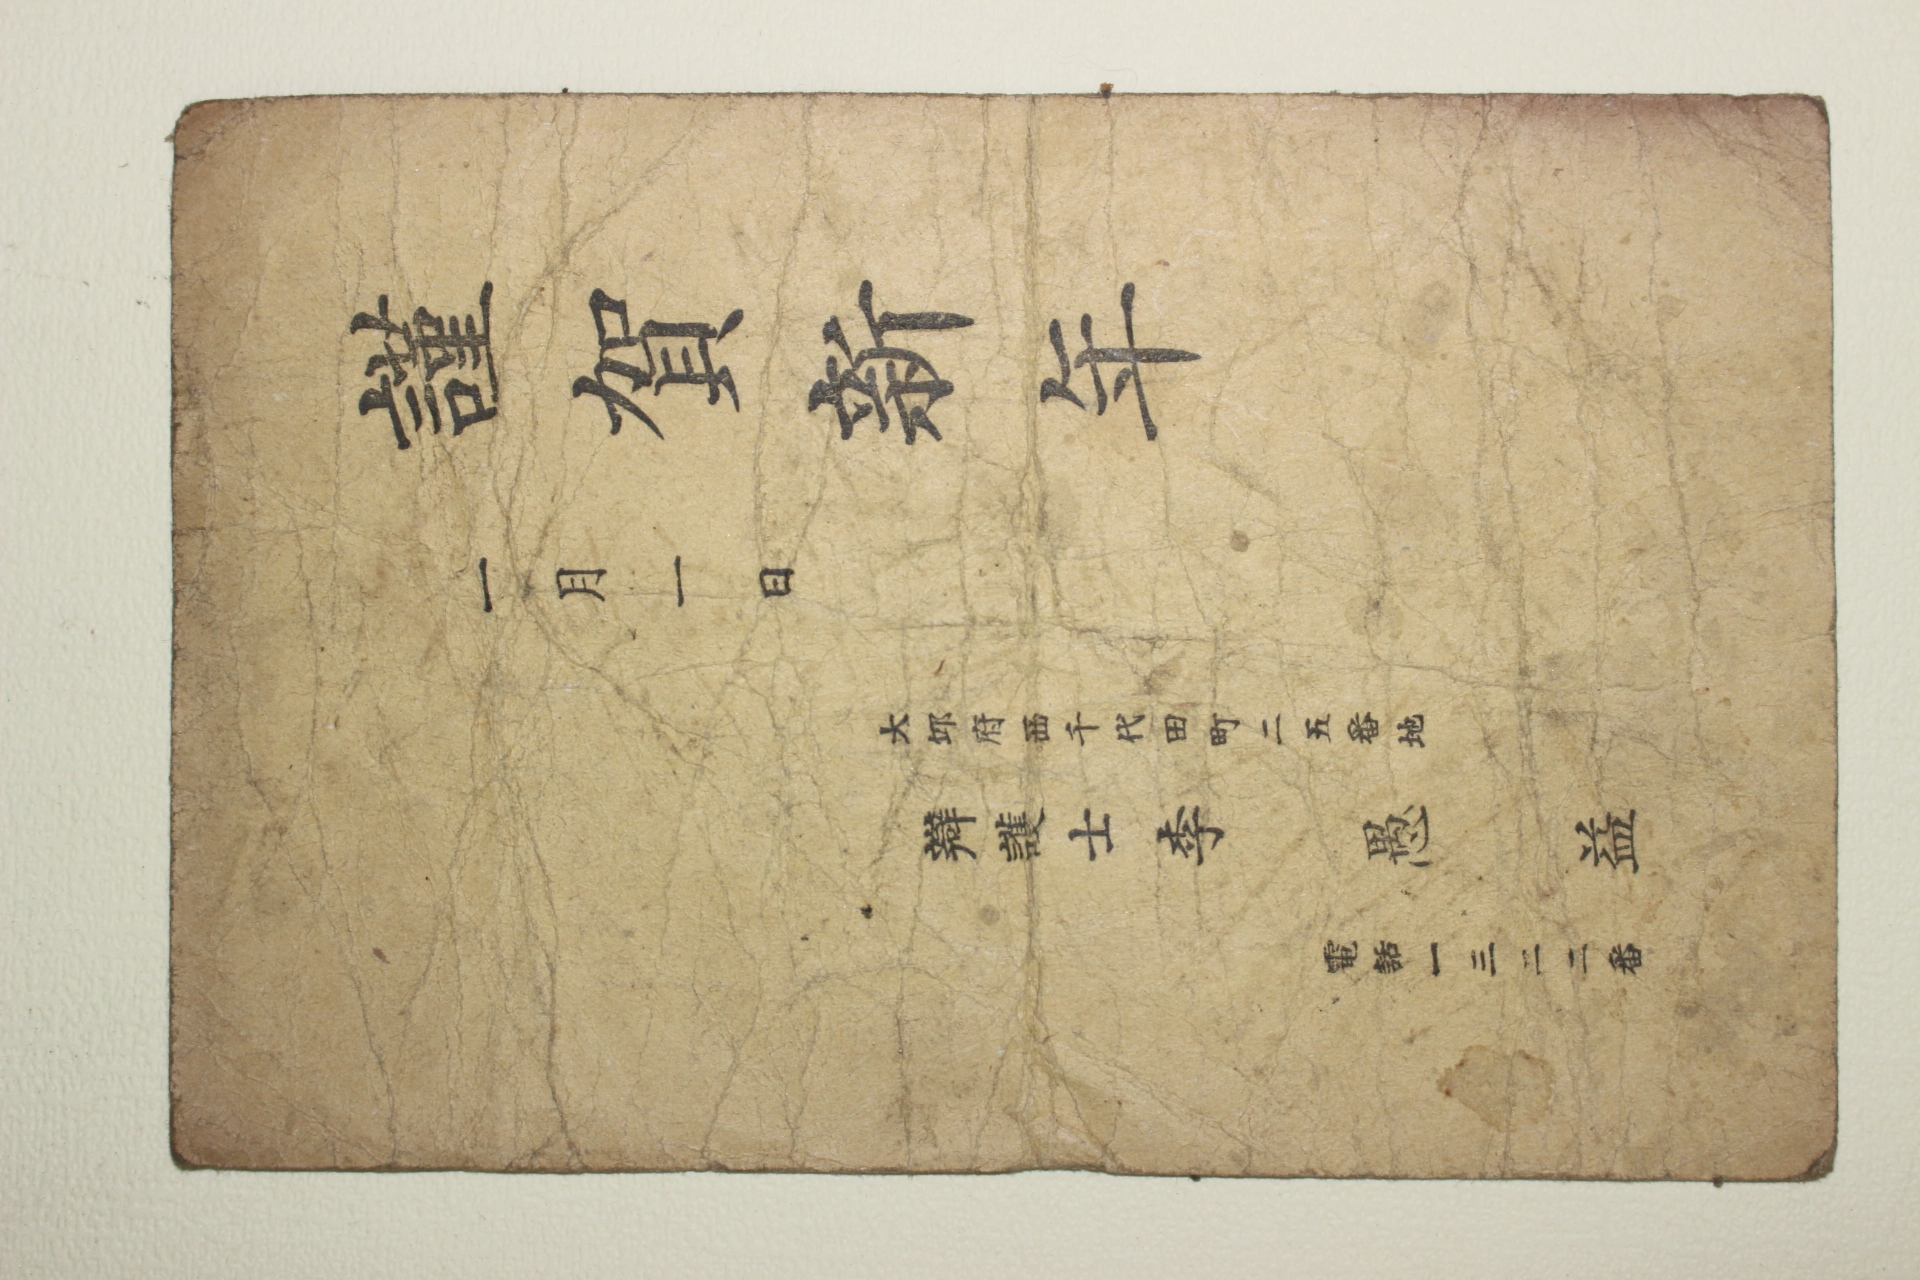 謹賀新年
一月一日
大邱府西千代田町二五番地
辯護士 李愚益
電話一三二二番